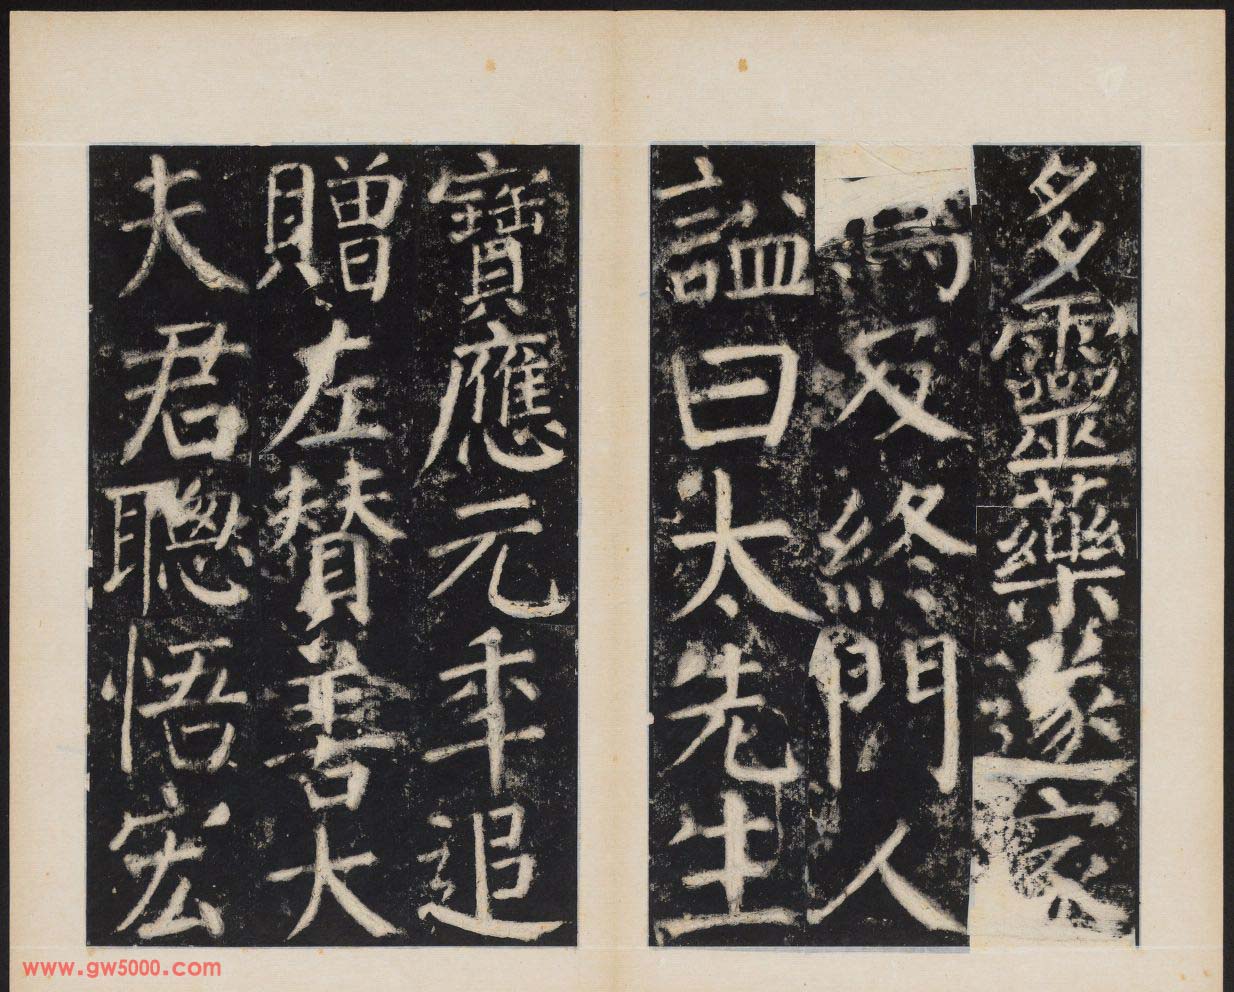 多靈藥遂家
焉及終門人
謚曰太先生
寶應元年追
贈左贊善大
夫君聰悟宏
www.gw5000.com